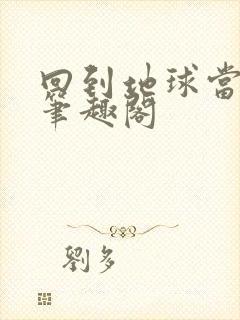 回到地球當
筆趣閣
劉多